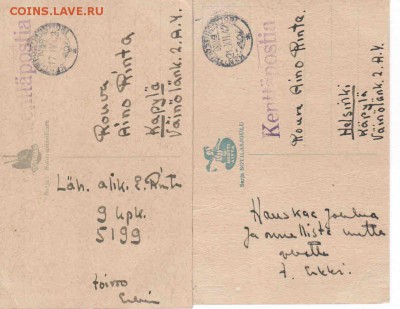 COINS.LAVE.RU
Kenttäpostia
Rouva
Aino Rinta
Käpylä
Väinölänk. 2. A.4.
Läh. alik. E. Rinta
9 kpk.
5199
toivoo
Kenttäpostia
Rouva Aino Rinta.
Helsinki
Käpylä
Väinölänk. 2. A.4.
Sarja SOTILAAJOULU
Hauskaa Joulua
ja onnellista uutta
vuotta
t. Erkki.